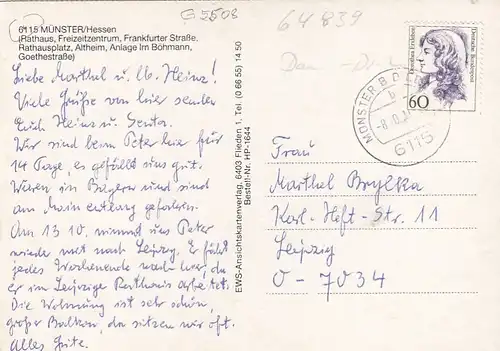 G 2508
64 839
6115 MÜNSTER/Hessen
(Rathaus, Freizeitzentrum, Frankfurter Straße,
Rathausplatz, Altheim, Anlage Im Böhmann,
Goethestraße)
Liebe Marthel u. lb. Heinz!
Viele Grüße von hier senden
Euch Heinz u. Senta.
Wir sind beim Peter hier für
14 Tage, es gefällt uns gut.
Waren in Bayern und sind
am Main entlang gefahren.
Am 13.10. nimmt uns Peter
wieder mit nach Leipzig. Er fährt
jedes Wochenende nach hier, da
er im Leipziger Rathaus arbeitet.
Die Wohnung ist sehr schön,
großer Balkon, da sitzen wir oft.
Alles Gute.
EWS-Ansichtskartenverlag, 6403 Flieden 1, Tel. (0 66 55) 14 50
Bestell-Nr. HP-1644
Dorothea Erxleben
Deutsche Bundespost
60
MÜNSTER B D
b
6115
Frau
Marthel Brylka
Karl-Heft-Str. 11
Leipzig
O-7034